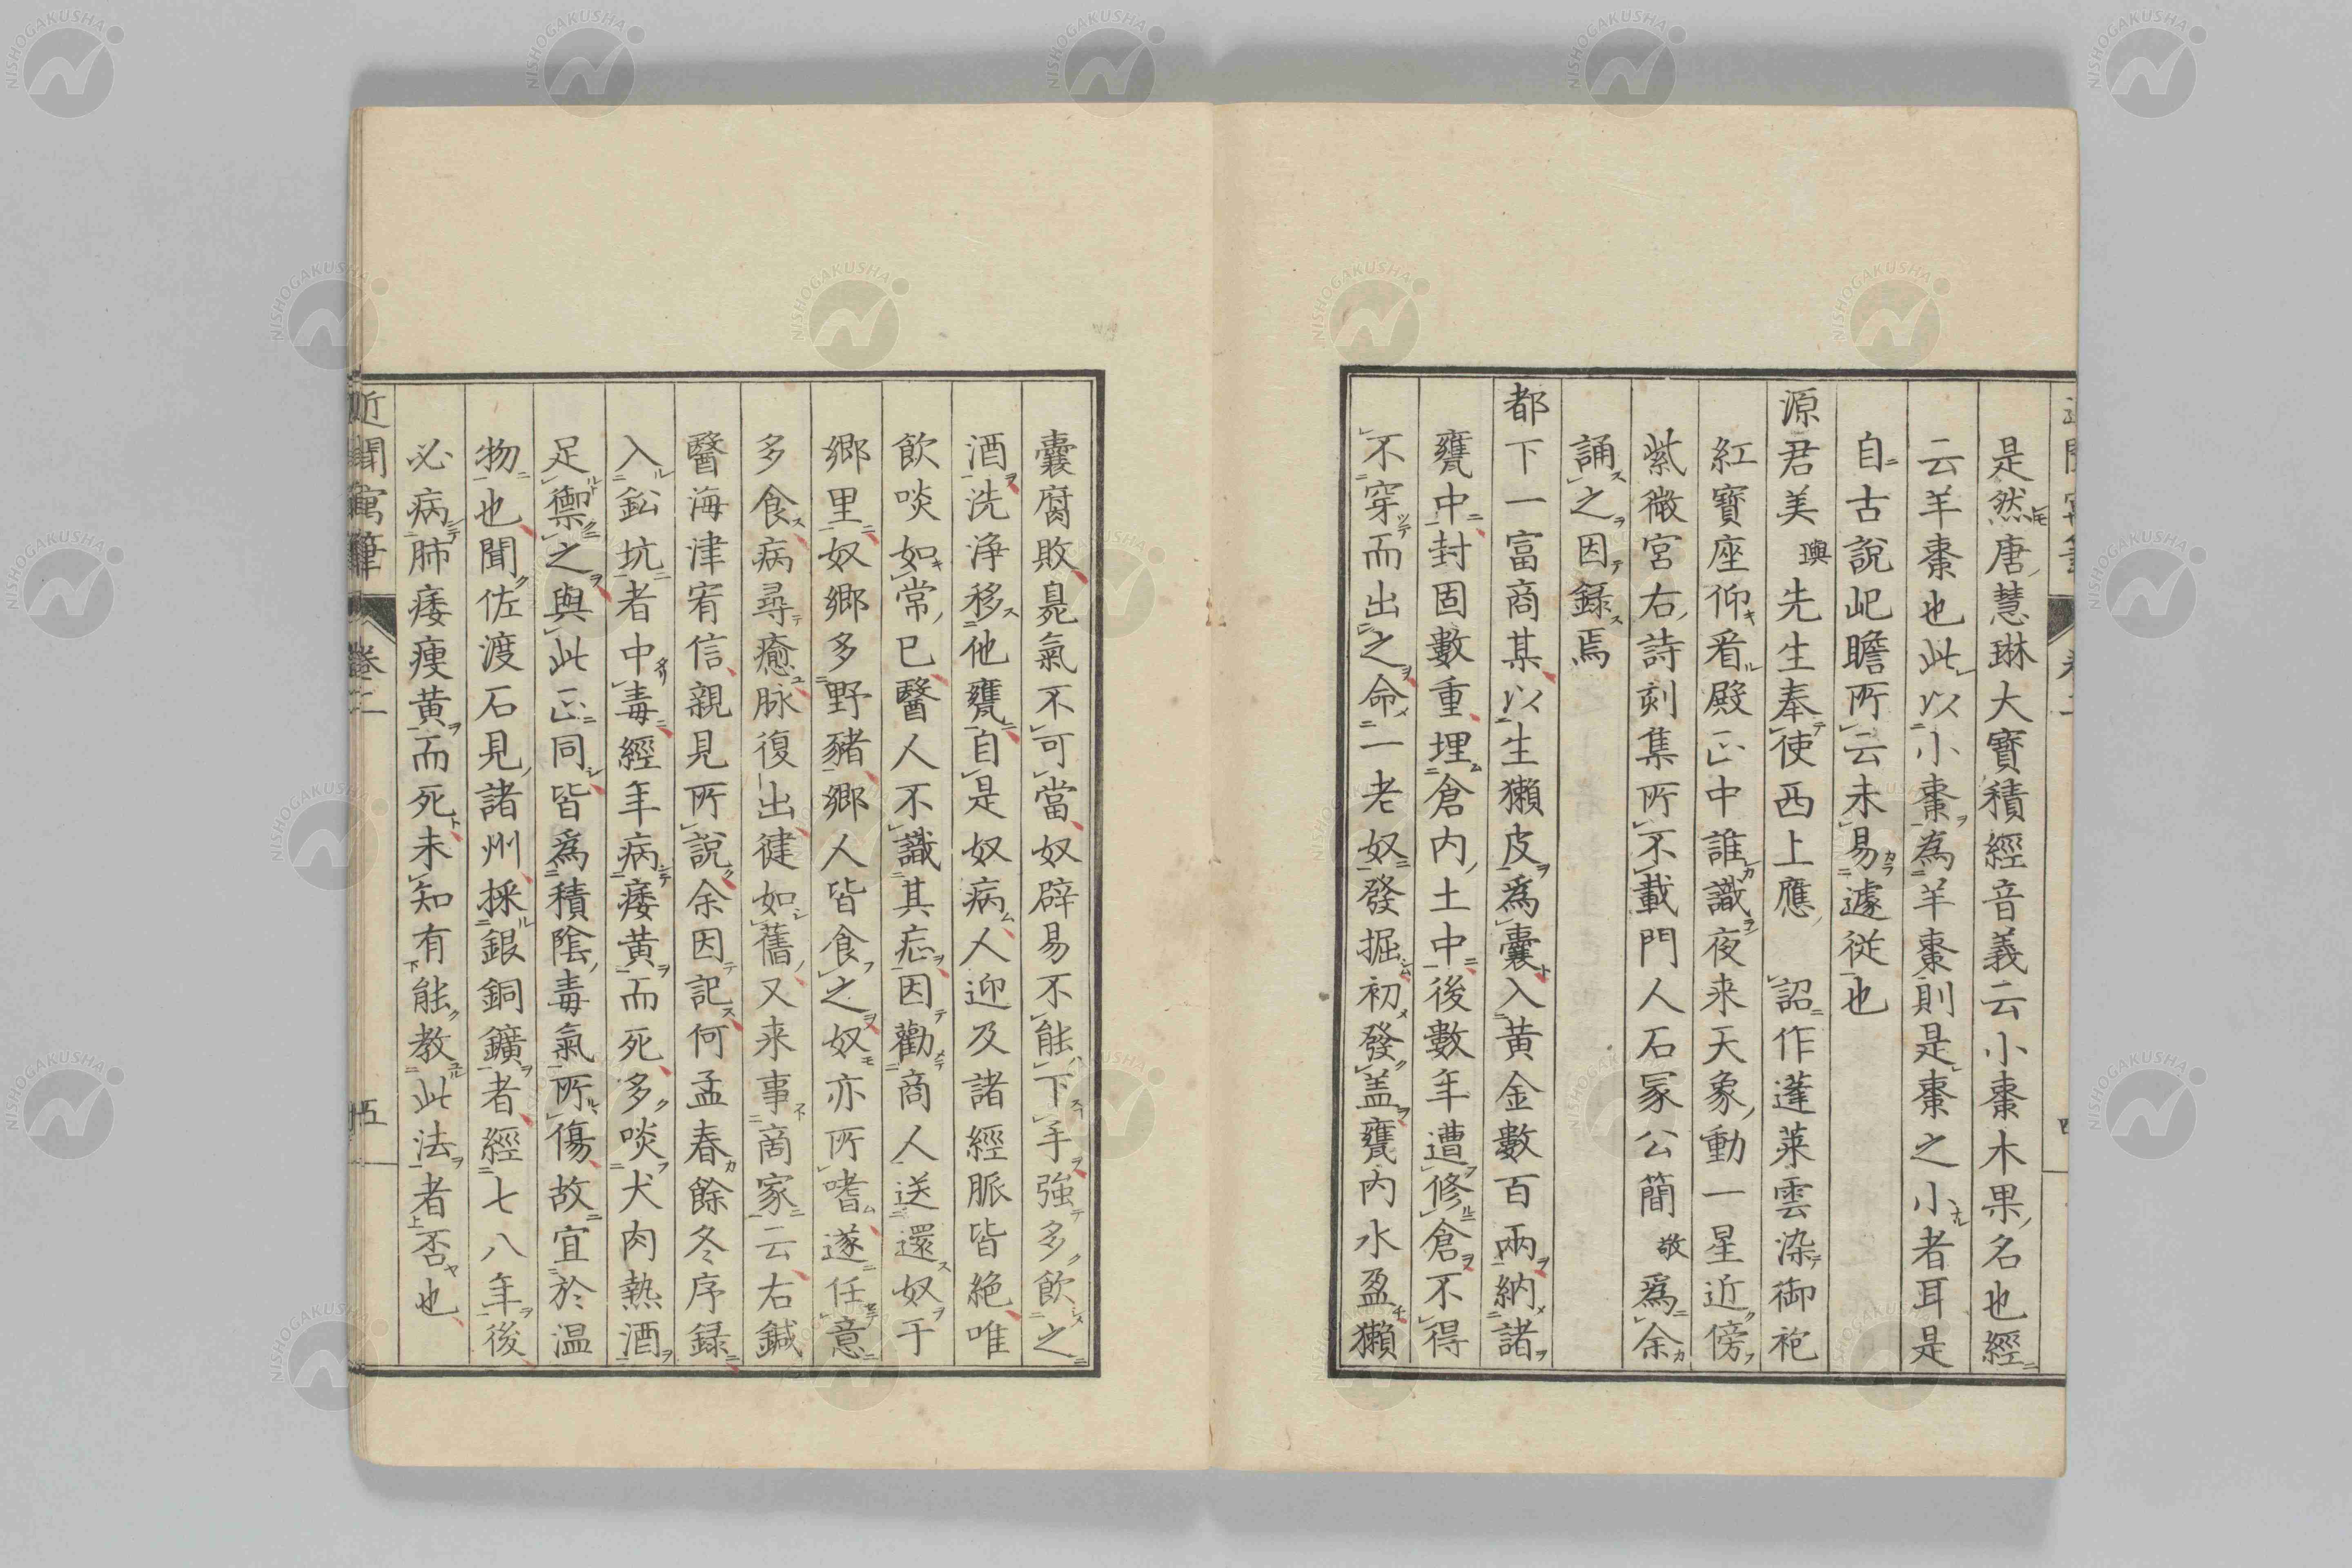 是然唐慧琳大寶積經音義云小棗木果名也經
云羊棗也此以小棗為羊棗則是棗之小者耳是
自古說屺瞻所云未易遽従也
源君美璵先生奉使西上應 詔作蓬萊雲染御袍
紅寶座仰看殿正中誰識夜来天象動一星近傍
紫微宮右詩刻集所不載門人石冢公簡敬爲余
誦之因録焉
都下一富商某以生獺皮爲囊入黄金數百兩納諸
甕中封固數重埋倉內土中後數年遭修倉不得
不穿而出之命一老奴發掘初發盖甕内水盈獺
囊腐敗臭氣不可當奴辟易不能下手強多飲之
酒洗浄移他甕自是奴病人迎及諸經脈皆絶唯
飲啖如常已醫人不識其症因勸商人送還奴于
郷里奴郷多野豬郷人皆食之奴亦所嗜遂任意
多食病尋癒脉復出徤如舊又来事商家云右鍼
醫海津宥信親見所説余因記何孟春餘冬序録
入鉛坑者中毒經年病痿黄而死多啖犬肉熱酒
足禦之與此正同皆爲積陰毒氣所傷故宜於温
物也聞佐渡石見諸州採銀銅鑛者經七八年後
必病肺痿痩黄而死未知有能教此法者否也
近聞寓筆 卷二 五